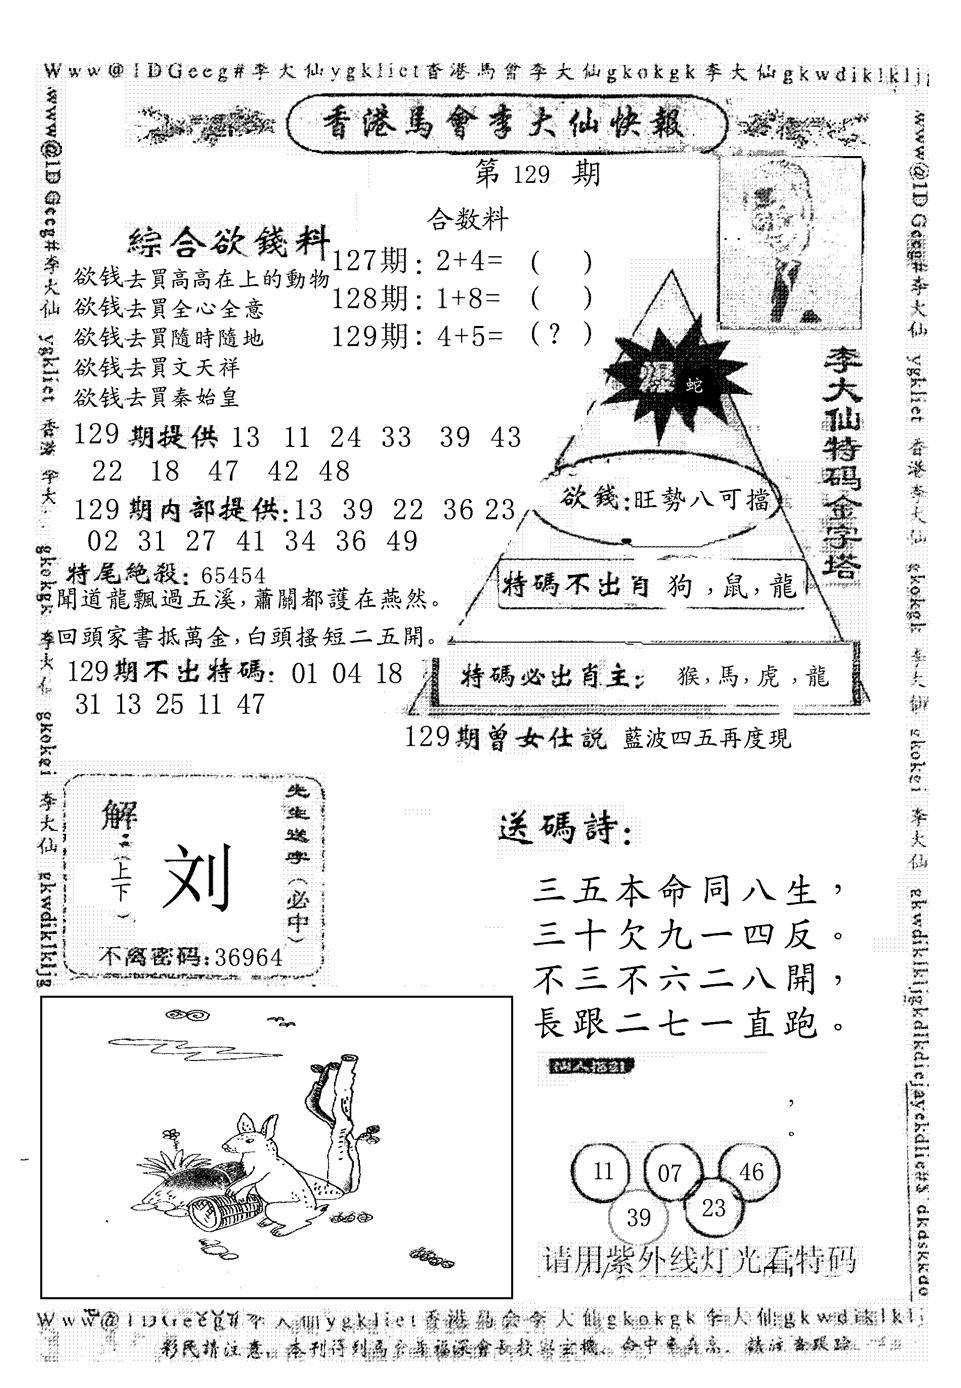 Www@1DGeeg#李大仙ygkliet香港馬會李大仙gkokgk李大仙gkwdiklklj
香港馬會李大仙快報
第 129 期
合数料
綜合欲錢料
127期: 2+4= ( )
128期: 1+8= ( )
129期: 4+5= (?)
欲钱去買高高在上的動物
欲钱去買全心全意
欲钱去買隨時隨地
欲钱去買文天祥
欲钱去買秦始皇
129期提供 13 11 24 33 39 43
22 18 47 42 48
129期内部提供:13 39 22 36 23
02 31 27 41 34 36 49
特尾絶殺: 65454
聞道龍飄過五溪,蕭關都護在燕然。
回頭家書抵萬金,白頭搔短二五開。
129期不出特碼: 01 04 18
31 13 25 11 47
李大仙特码金字塔
爆 蛇
欲錢:旺勢八可擋
特碼不出肖 狗,鼠,龍
特碼必出肖主: 猴,馬,虎,龍
129期曾女仕説 藍波四五再度現
先生送字(必中)
解:(上下)
刘
不离密码:36964
送碼詩:
三五本命同八生,
三十欠九一四反。
不三不六二八開,
長跟二七一直跑。
,
。
11 07 46
39 23
请用紫外线灯光看特码
www@1DGeeg#李大仙 ygkliet 香港 李大 gkokgk 李大仙 gkokei 李大仙 gkwdiklkljg
www@1DGeeg#李大仙 ygkliet 香港李大仙 gkokgk 李大仙 gkokei 李大仙 gkwdiklkljgkdlkdiejayekdlie#$ dkdskkdo
Www@1DGeeg#李大仙ygkliet香港馬会李大仙gkokgk李大仙gkwdiklklj
彩民請注意,本刊得到馬会